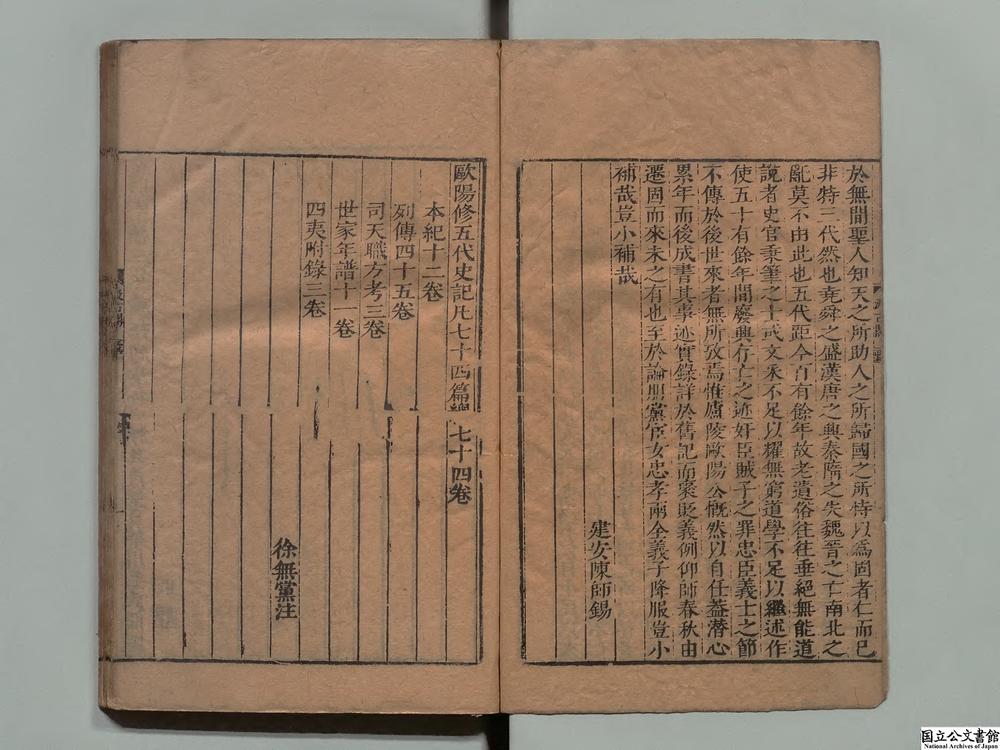 於無間聖人知天之所助人之所歸國之所恃以爲固者仁而已
非特三代然也堯舜之盛漢唐之興秦隋之失魏晉之亡南北之
亂莫不由此也五代距今百有餘年故老遺俗往往垂絕無能道
說者史官秉筆之士或文采不足以耀無窮道學不足以繼述作
使五十有餘年間廢興存亡之迹奸臣賊子之罪忠臣義士之節
不傳於後世來者無所攷焉惟廬陵歐陽公慨然以自任葢潜心
累年而後成書其事迹實錄詳於舊記而褒貶義例仰師春秋由
遷固而來未之有也至於論朋黨宦女忠孝兩全義子降服豈小
補哉豈小補哉
建安陳師錫
歐陽修五代史記凡七十四篇緫七十四卷
本紀十二卷
列傳四十五卷
司天職方考三卷
世家年譜十一卷
四夷附錄三卷
徐無黨注
国立公文書館
National Archives of Japan